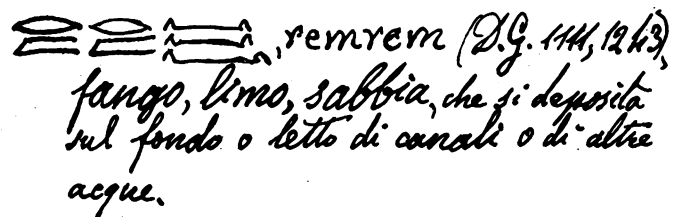 , remrem (D.G. 1111, 1243),
fango, limo, sabbia, che si deposita
sul fondo o letto di canali o di altre
acque.